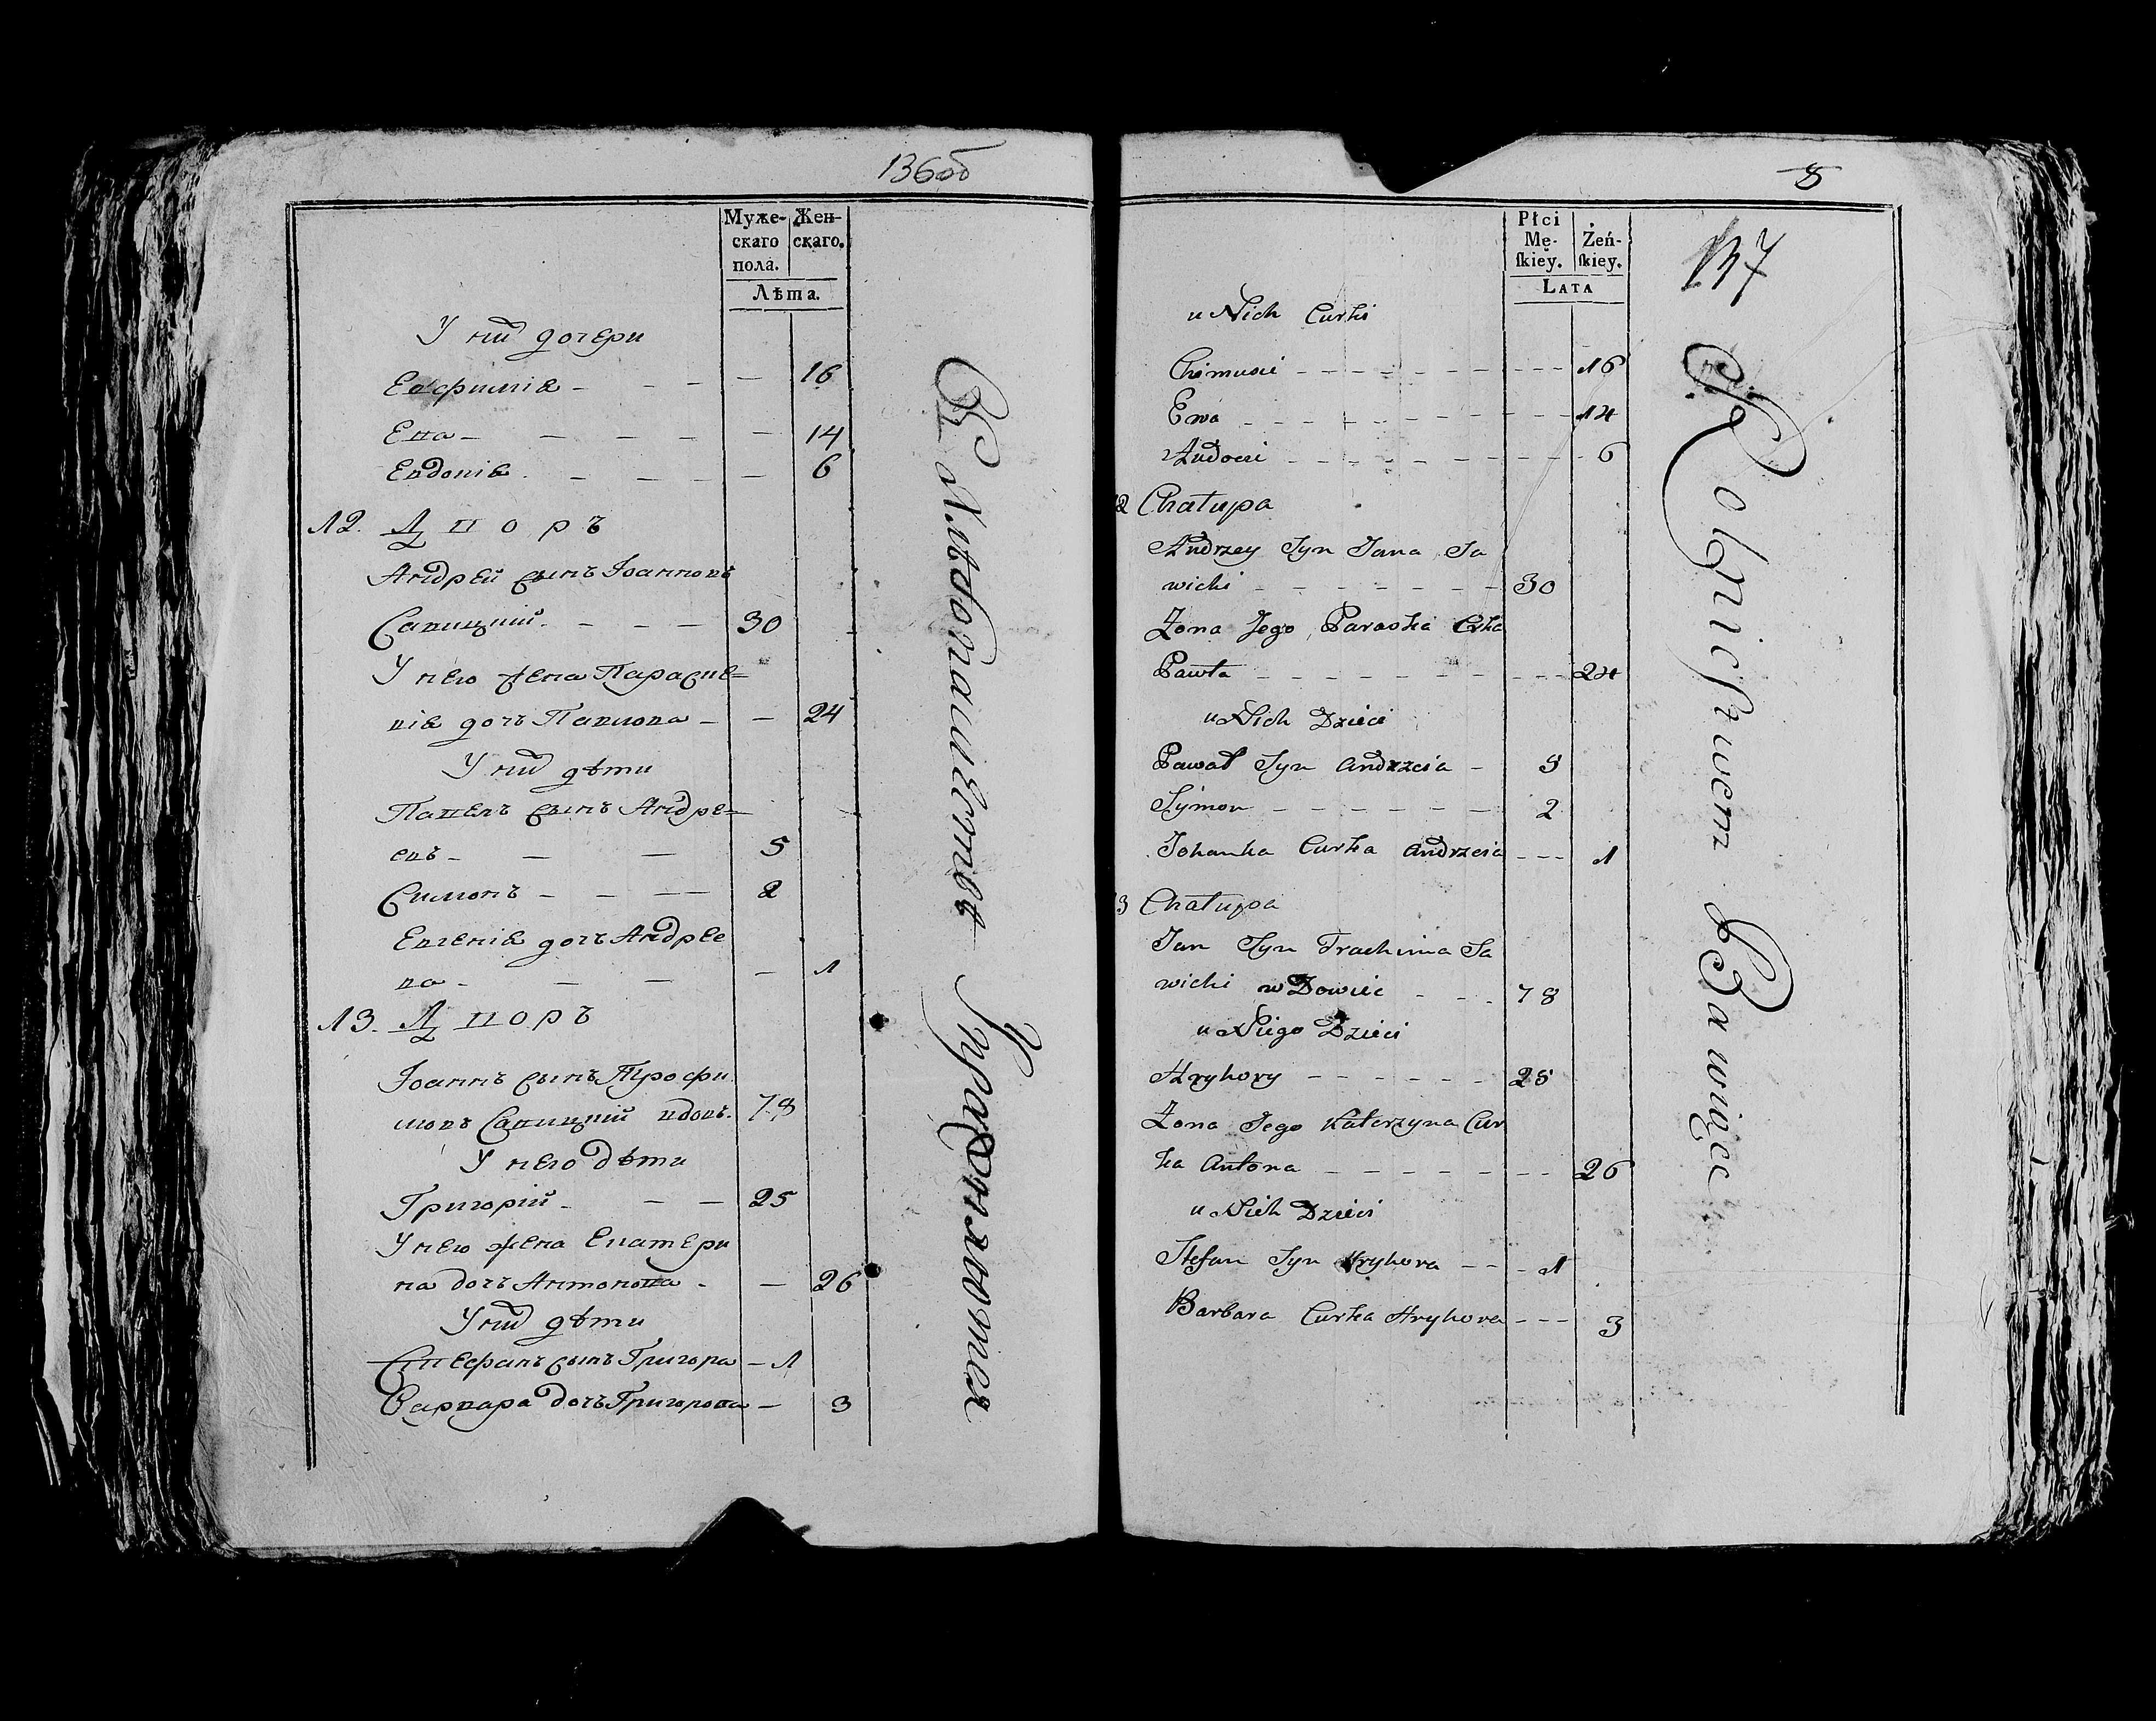 136об
Муже-
скаго
пола.
Жен-
скаго.
Лѣта.
У нихъ дочери
Евфимія - - - - 16
Ева - - - - - 14
Евдокія. - - - - 6
12. Дворъ
Андрей сынъ Іоанновъ
Савицкій. - - - 30
У него жена Параске=
вія дочъ Павлова - - 24
У нихъ дѣти
Павелъ сынъ Андре=
евъ - - - 5
Симонъ - - - - 2
Евгенія дочъ Андрее
ва - - - - 1
13. Дворъ
Іоаннъ сынъ Трофи
мовъ Савицкій вдовъ. 78
У него дѣти
Григорій - - - 25
У него жена Екатери
на дочъ Антонова - - 26
У нихъ дѣти
Стефанъ сынъ Григора - 1
Варвара дочъ Григорова - 3
Хлѣбопашествѣ Упражняются
8
137
Płci
Mę-
ſkiey.
Żeń-
ſkiey.
LATA
u Nich Curki
- - - - - - - - - 16
Ewa - - - - - - - - 14
- - - - - - - - - 6
12 Chałupa
Andrzey Syn Jana Sa
wicki - - - - - - - 30
Żona Jego Paraska Crka
Pawła - - - - - - - - - 24
u Nich Dzieci
Paweł Syn Andrzeia - 5
Symon - - - - - - 2
Johanka Curka Andrzeia - - - 1
13 Chałupa
Jan Syn Trachima Sa
wicki w Dowiec - - - 78
u Niego Dzieci
Hryhory - - - - - - 25
Żona Jego Katerzyna Cur
ka Antona - - - - - - - - 26
u Nich Dzieci
Stefan Syn Hryhora - - - 1
Barbara Curka Hryhora - - - 3
Rolnictwem Bawięce